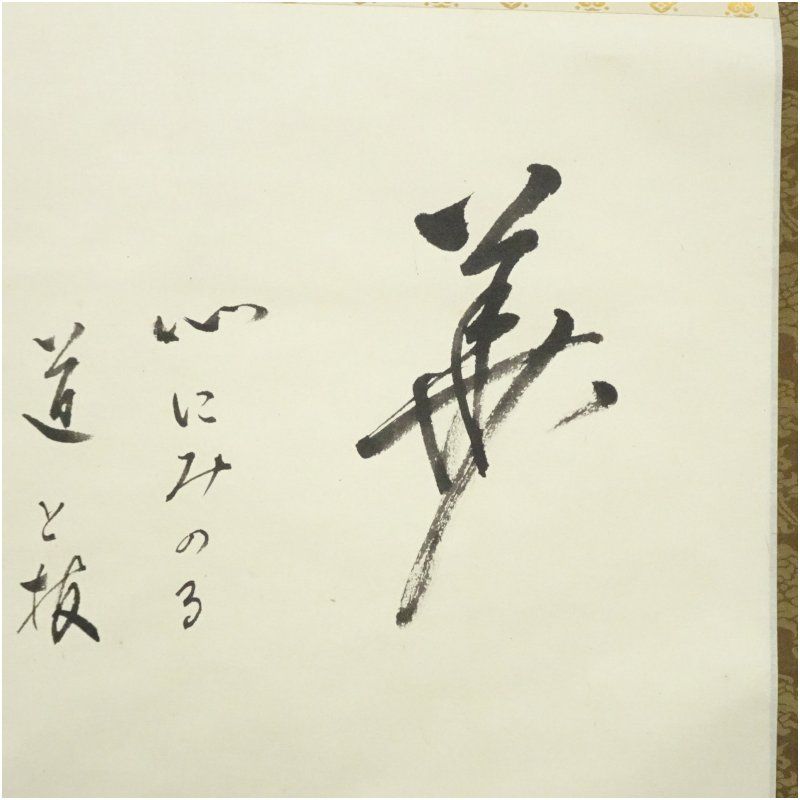 心にみのる
道と技